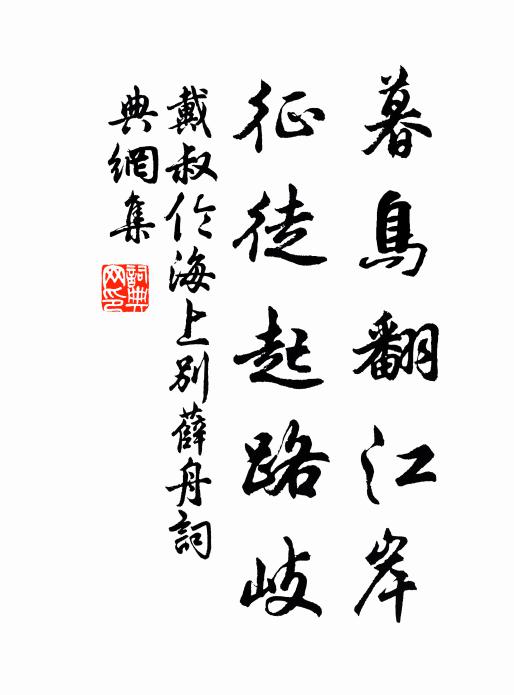 暮鳥翻江岸
征徒起路岐
戴叔伦海上別薛舟詞
典網集
詞典
网印